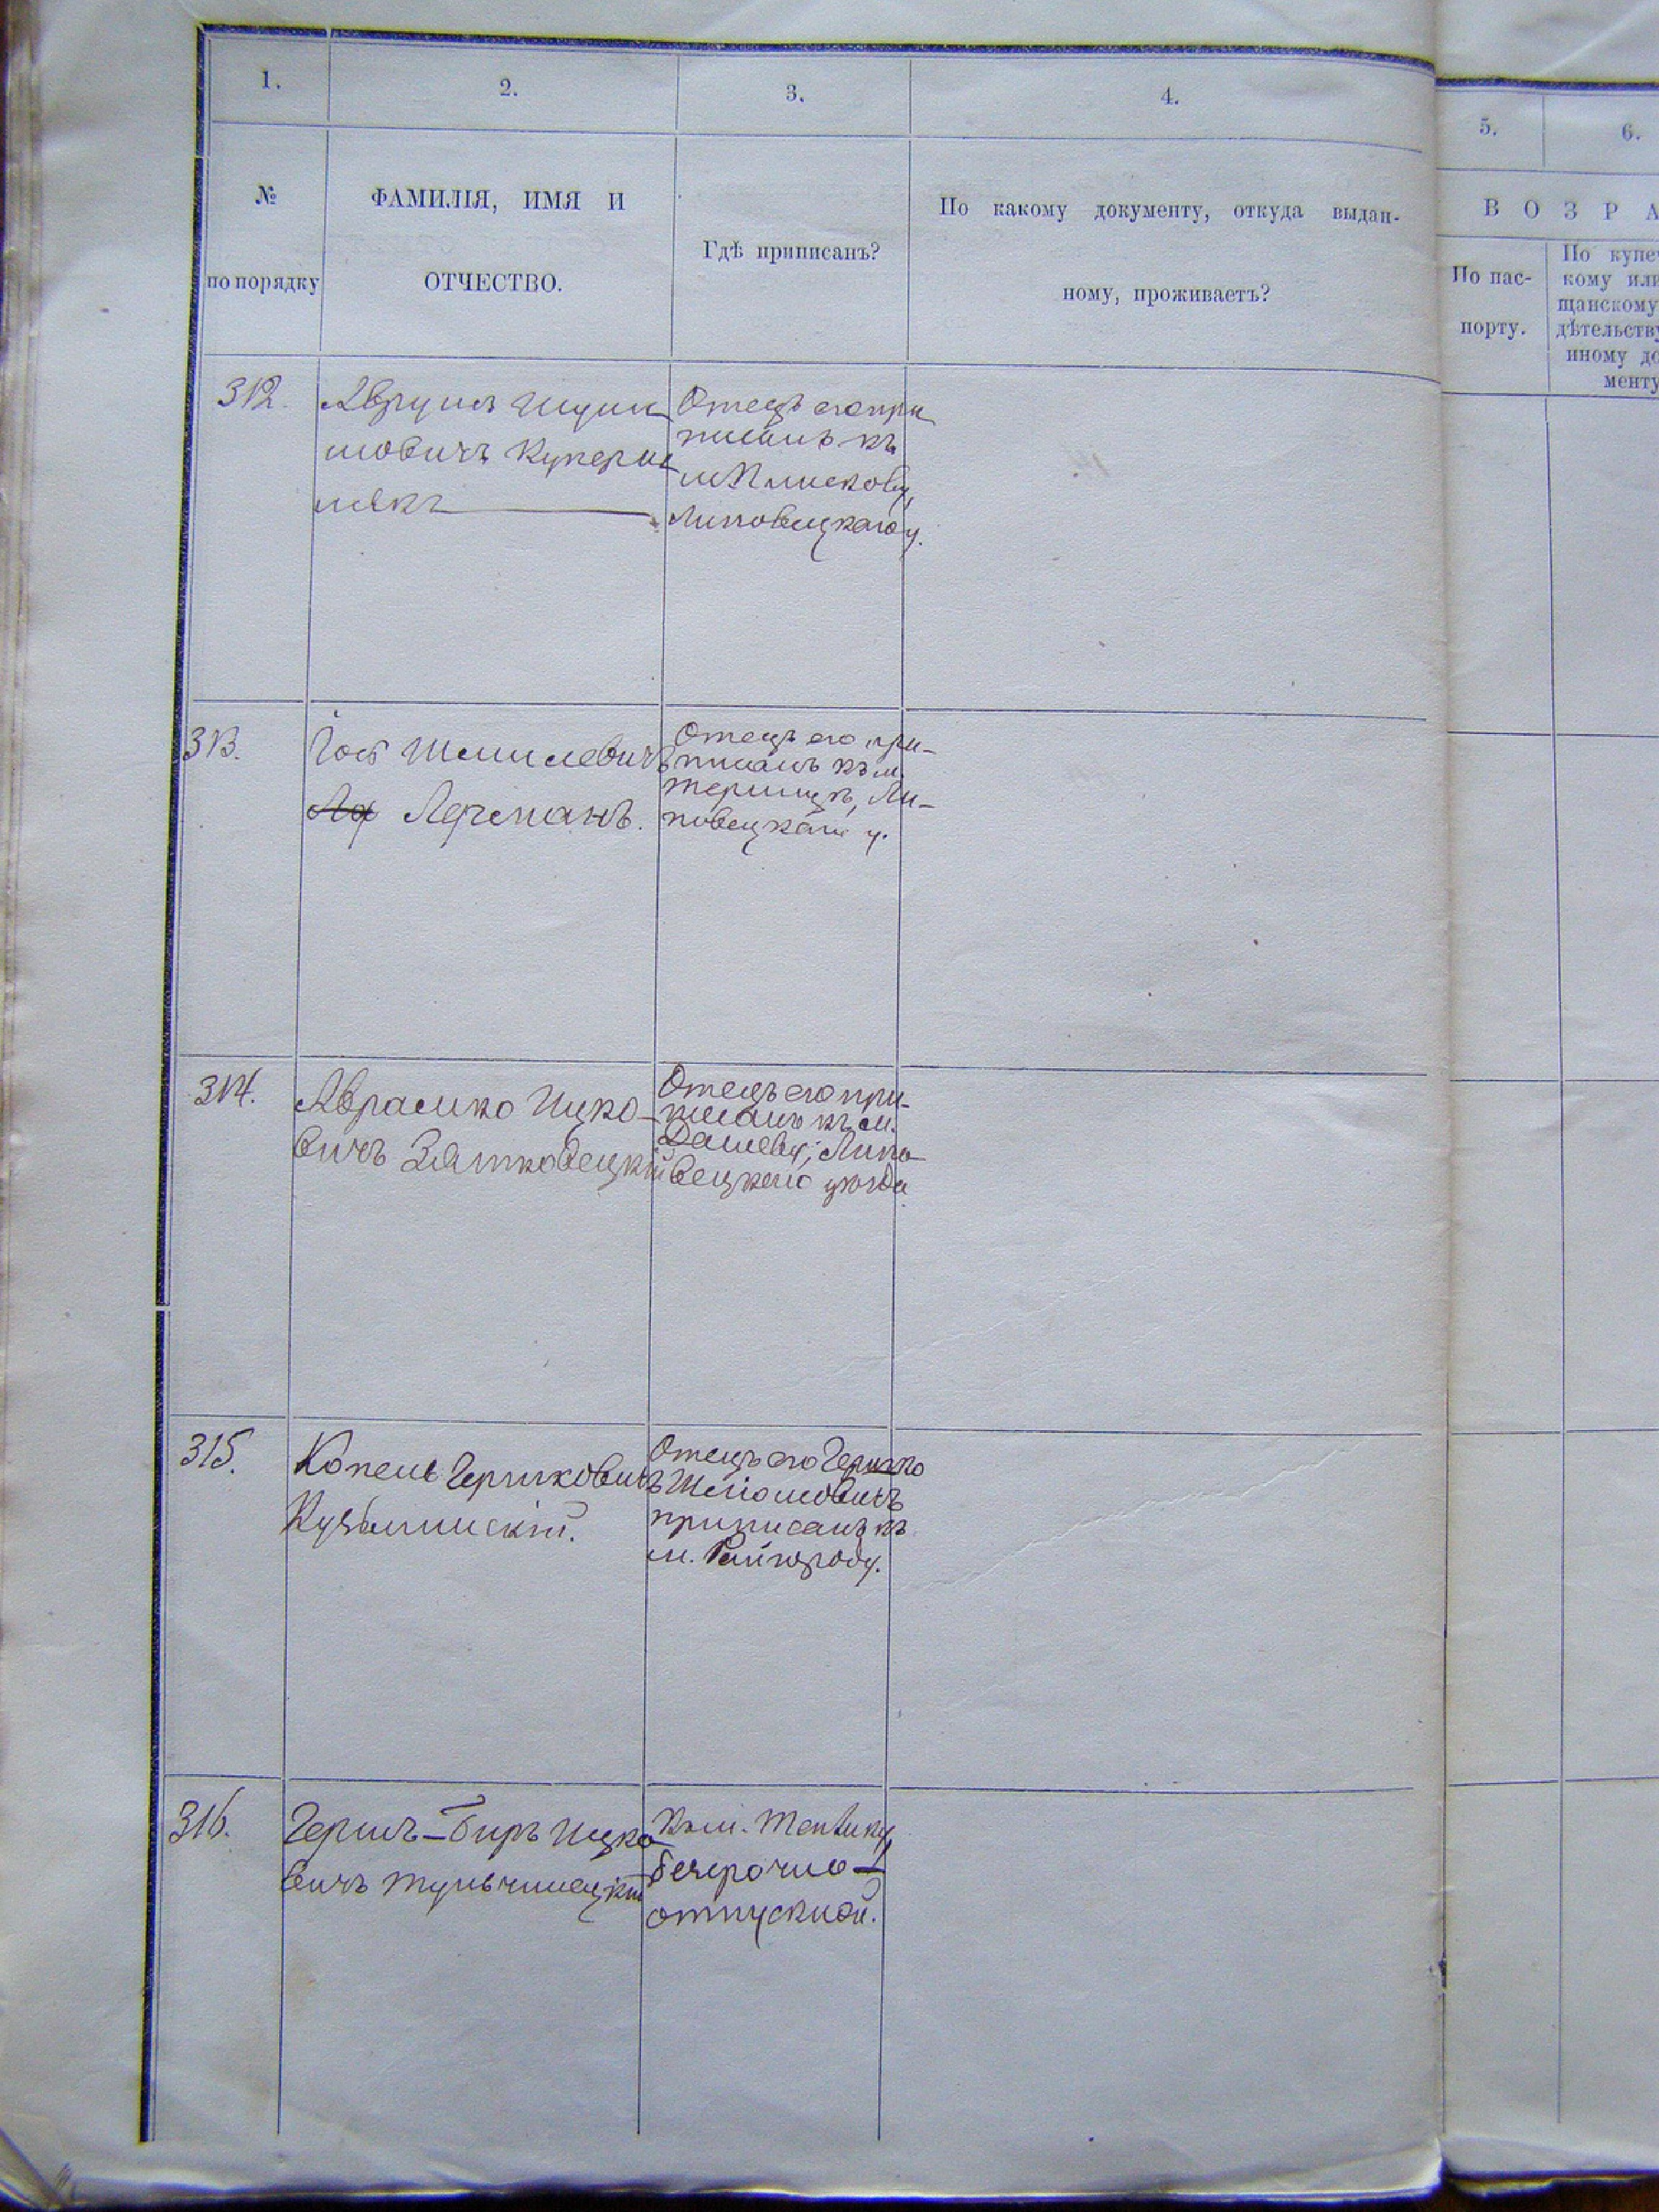 1.
2.
3.
4.
5.
6.
№
по порядку
ФАМИЛІЯ, ИМЯ И
ОТЧЕСТВО.
Гдѣ приписанъ?
По какому документу, откуда выдан-
ному, проживаетъ?
ВОЗРА
По пас-
порту.
По купе
кому или
щанскому
дѣтельству
иному до
менту
312.
Аврумъ
мовичъ Куперш
мякъ
Отецъ его при
писанъ къ
м Плискову,
Липовецкаго у.
313.
Іось Шмилевичъ
Лерманъ.
Отецъ его при-
писанъ къ м.
Терлицѣ, Ли-
повецкаго у.
314.
Аврамко Ицко-
вичъ Зятковецкій
Отецъ его при-
писанъ къ м.
Дашеву, Липо-
вецкаго уѣзда
315.
Копель Гершковичъ
Кузьминскій.
Отецъ его Гершко
Шліомовичъ
приписанъ къ
м. Райгороду.
316.
Гершъ-Беръ Ицко
вичъ Тульчинецкій
Къ м. Теплику,
безсрочно-
отпускной.